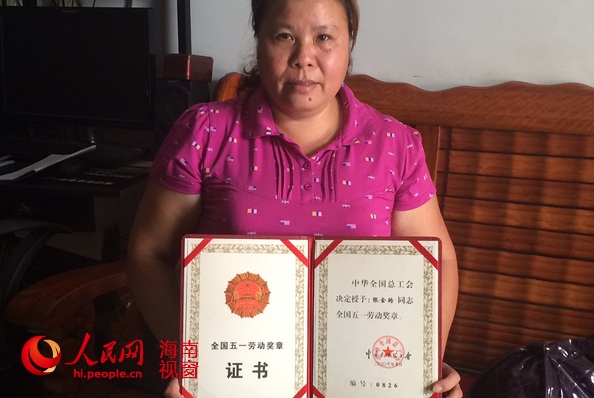 全国五一劳动奖章
证书
中华全国总工会
决定授予:张金梅 同志
全国五一劳动奖章。
中华全国总工会
编号:0826
人民网
hi.people.cn
海南
视窗